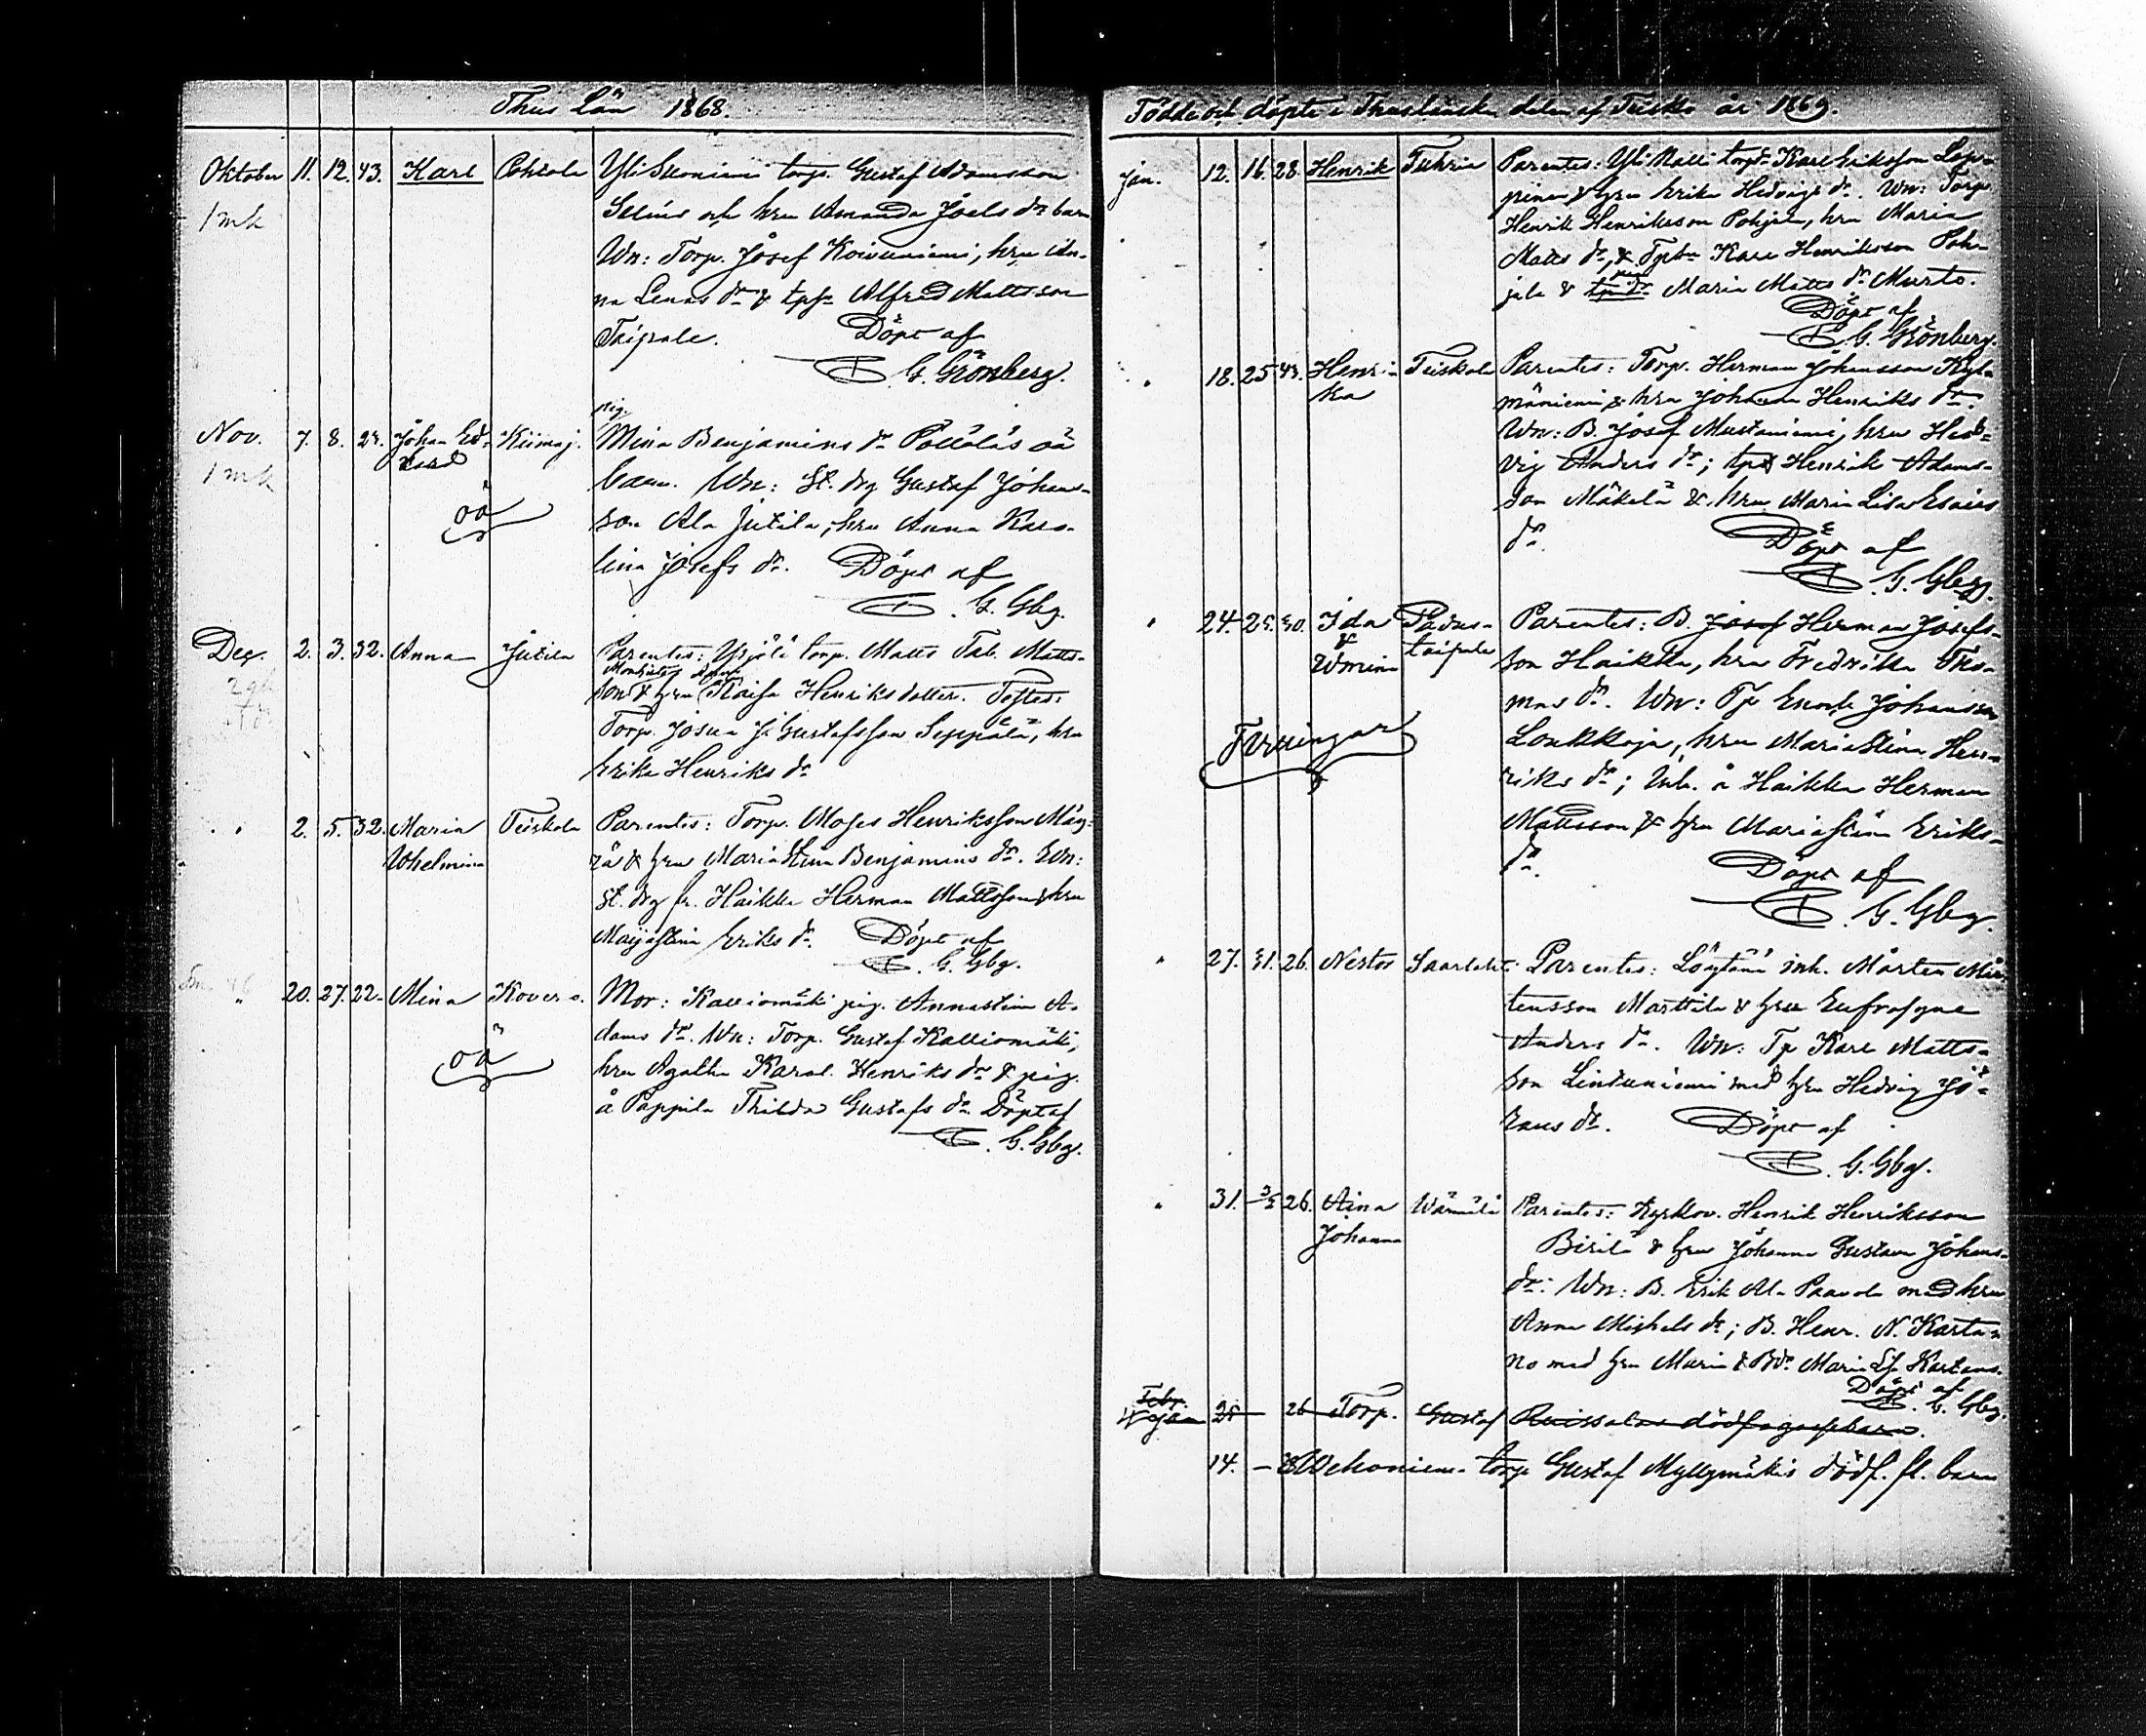 Thus Län 1868.
Oktober 11. 12. 43. Karl Pohtola Yli Suoniemi torp. Gustaf Adamsson
1 mk Selins och hru Amanda Joels dr barn
Wn: Torp. Josef Koivuniemi, hru An-
na Lenas dr & Alfred Mattsson
Taipale. Döpt af
G. Grönberg.
pig.
Nov. 7. 8. 24. Johan Ed- Kiimaj. Mina Benjamins dr Pöllöläs oä
1 mk vard barn. Wn: St. drg Gustaf Johans-
oä son Ala Jutila, hru Anna Karo-
lina Josefs dr. Döpt af
G. Gbg.
Dec. 2. 3. 32. Anna Jutila Parentes: torp. Matts Tab. Matts-
son & hru Kaisa Henriksdotter. Testes:
Torp. Josua J. Gustafsson Seppälä, hru
Erika Henriks dr
" 2. 5. 32. Maria Teiskola Parentes: Torp. Moses Henriksson Mäy-
Whelmina rä & hru Maria Stina Benjamins dr. Wn:
St. drg fr. Haikka Herman Mattsson & hru
Majastina Eriks dr. Döpt af
G. Gbg.
" 20. 27. 22. Mina Kovero. Mor: Kalliomäki pig. Annastina A-
dams dr. Wn: Torp. Gustaf Kalliomäki,
oä hru Agatha Karol. Henriks dr & pig.
å Pappila Thilda Gustafs dr Döpt af
G. Gbg.
Födde och döpte i Thuslänska delen af Teisko år 1869.
Jan. 12. 16. 28. Henrik Tuhria Parentes: Yli Nalli torp. Karl Eriksson Lep-
pinen & hru Erika Hedvigs dr. Wn: Torp.
Henrik Henriksson Pohjala, hru Maria
Matts dr, & Karl Henriksson Poh-
jala & Maria Matts dr Murto.
Döpt af
G. Grönberg.
" 18. 25. 43. Henri- Teiskola Parentes: Torp. Herman Johansson Kyl-
ka mäniemi & hru Johanna Henriks dr.
Wn: B. Josef Mustaniemi, hru Hed-
vig Anders dr; Henrik Adams-
son Mäkelä & hru Maria Lisa Esaias
dr. Döpt af
G. Gbg.
" 24. 25. 30. Ida Padus- Parentes: B. Josef Herman Josefs-
& taipale son Haikka, hru Fredrika Tho-
Wmina mas dr. Wn: Tp Enock Johansson
Tvillingar Loukkoja, hru Maria Stina Hen-
riks dr; Inh. å Haikka Herman
Mattsson & hru Maria Stina Eriks-
dr. Döpt af
G. Gbg.
" 27. 31. 26. Nestor Saarlaht. Parentes: Löytäni inh. Mårten Mår-
tensson Marttila & hru Eufrosyne
Anders dr. Wn: Tp Karl Matts-
son Lintuniemi med hru Hedvig Jö-
rans dr. Döpt af
G. Gbg.
" 31. 3/2 26. Aina Värmälä Parentes: Kyrkov. Henrik Henriksson
Johanna Birilä & hru Johanna Gustava Johans-
dr. Wn: B. Erik Al. Paavola med hru
Anna Michels dr; B. Henr. N. Karta-
no med hru Maria & Bdr Maria Kartano.
Döpt af
G. Gbg.
Febr.
Jan 25 26 Torp. Gustaf Ruissalos dödf. gossebarn.
14. — torp Gustaf Myllymäkis dödf. fl. barn